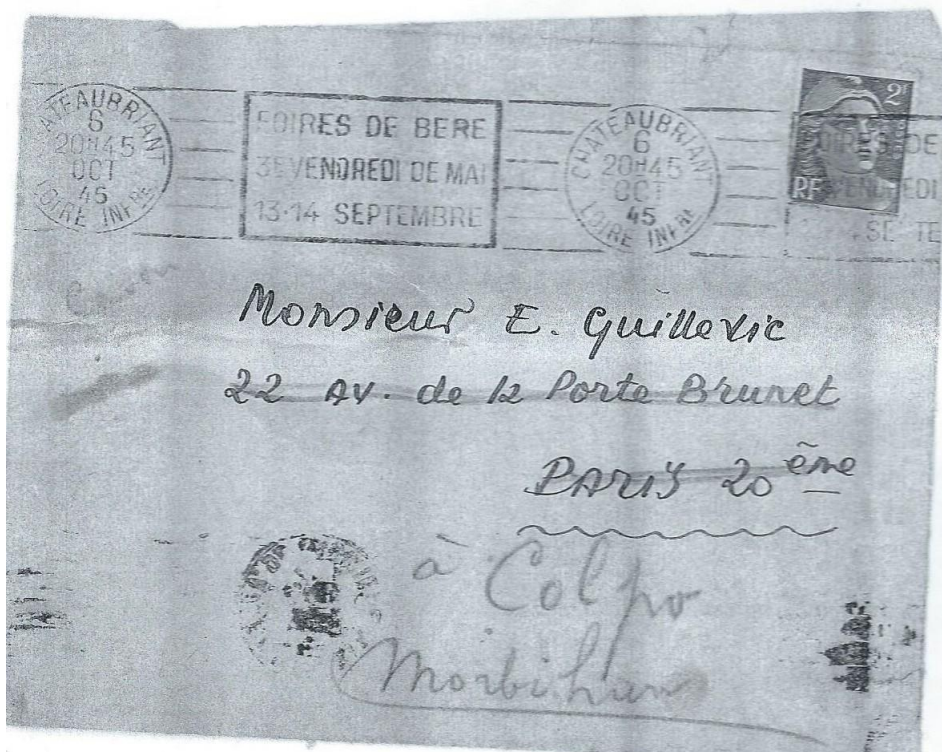 CHATEAUBRIANT
6
20H45
OCT
45
LOIRE INFRE
FOIRES DE BERE
3E VENDREDI DE MAI
13-14 SEPTEMBRE
CHATEAUBRIANT
6
20H45
OCT
45
LOIRE INFRE
2F
RF
Monsieur E. Guillevic
22 AV. de la Porte Brunet
PARIS 20 ème
à Colpo
Morbihan